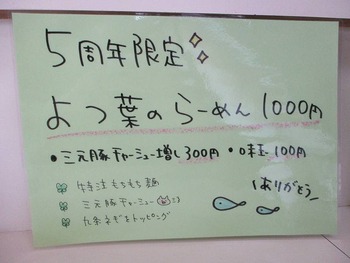 5周年限定
よつ葉のらーめん 1000円
・三元豚チャーシュー増し300円 ・味玉100円
特注もちもち麺
三元豚チャーシュー
九条ネギをトッピング
ありがとう